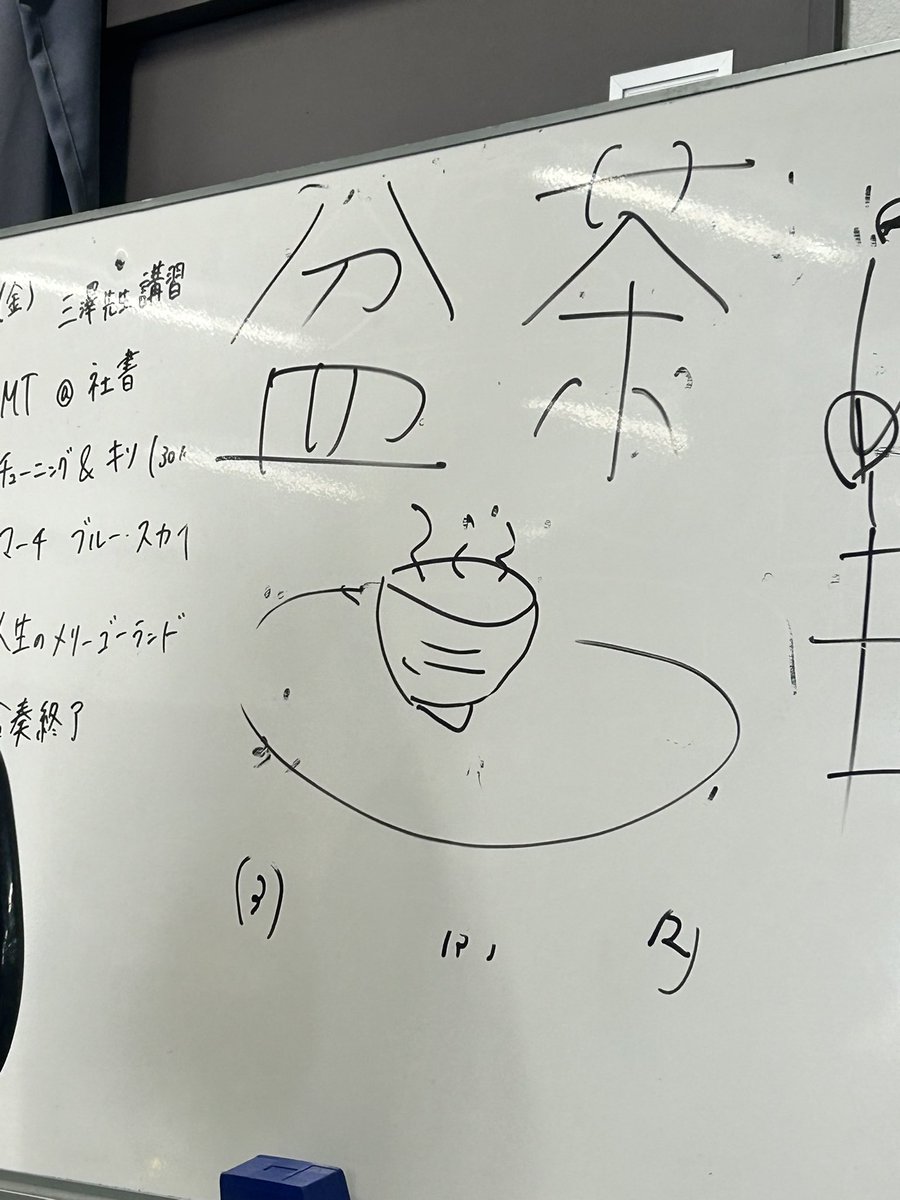 (金) 三澤先生講習
MT @ 社書
チューニング & キソ (30
マーチ ブルー・スカイ
人生のメリーゴーランド
合奏終了
盆 茶